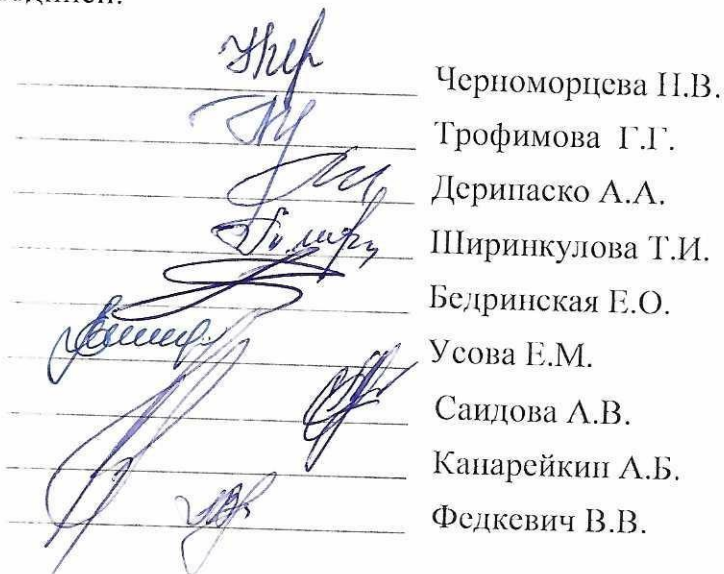 Черноморцева Н.В.
Трофимова Г.Г.
Дерипаско А.А.
Ширинкулова Т.И.
Бедринская Е.О.
Усова Е.М.
Саидова А.В.
Канарейкин А.Б.
Федкевич В.В.